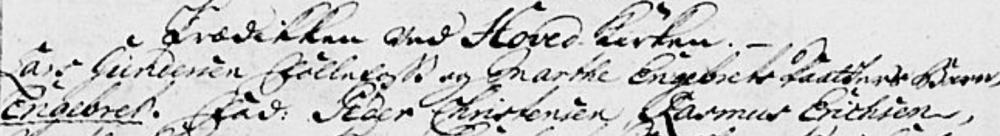 Prædikken ved Hoved-Kirken. –
Lars Gundersen og Marthe Engebrets Daatters Barn
Engebret. Fad: Peder Christensen, Rasmus Erichsen,